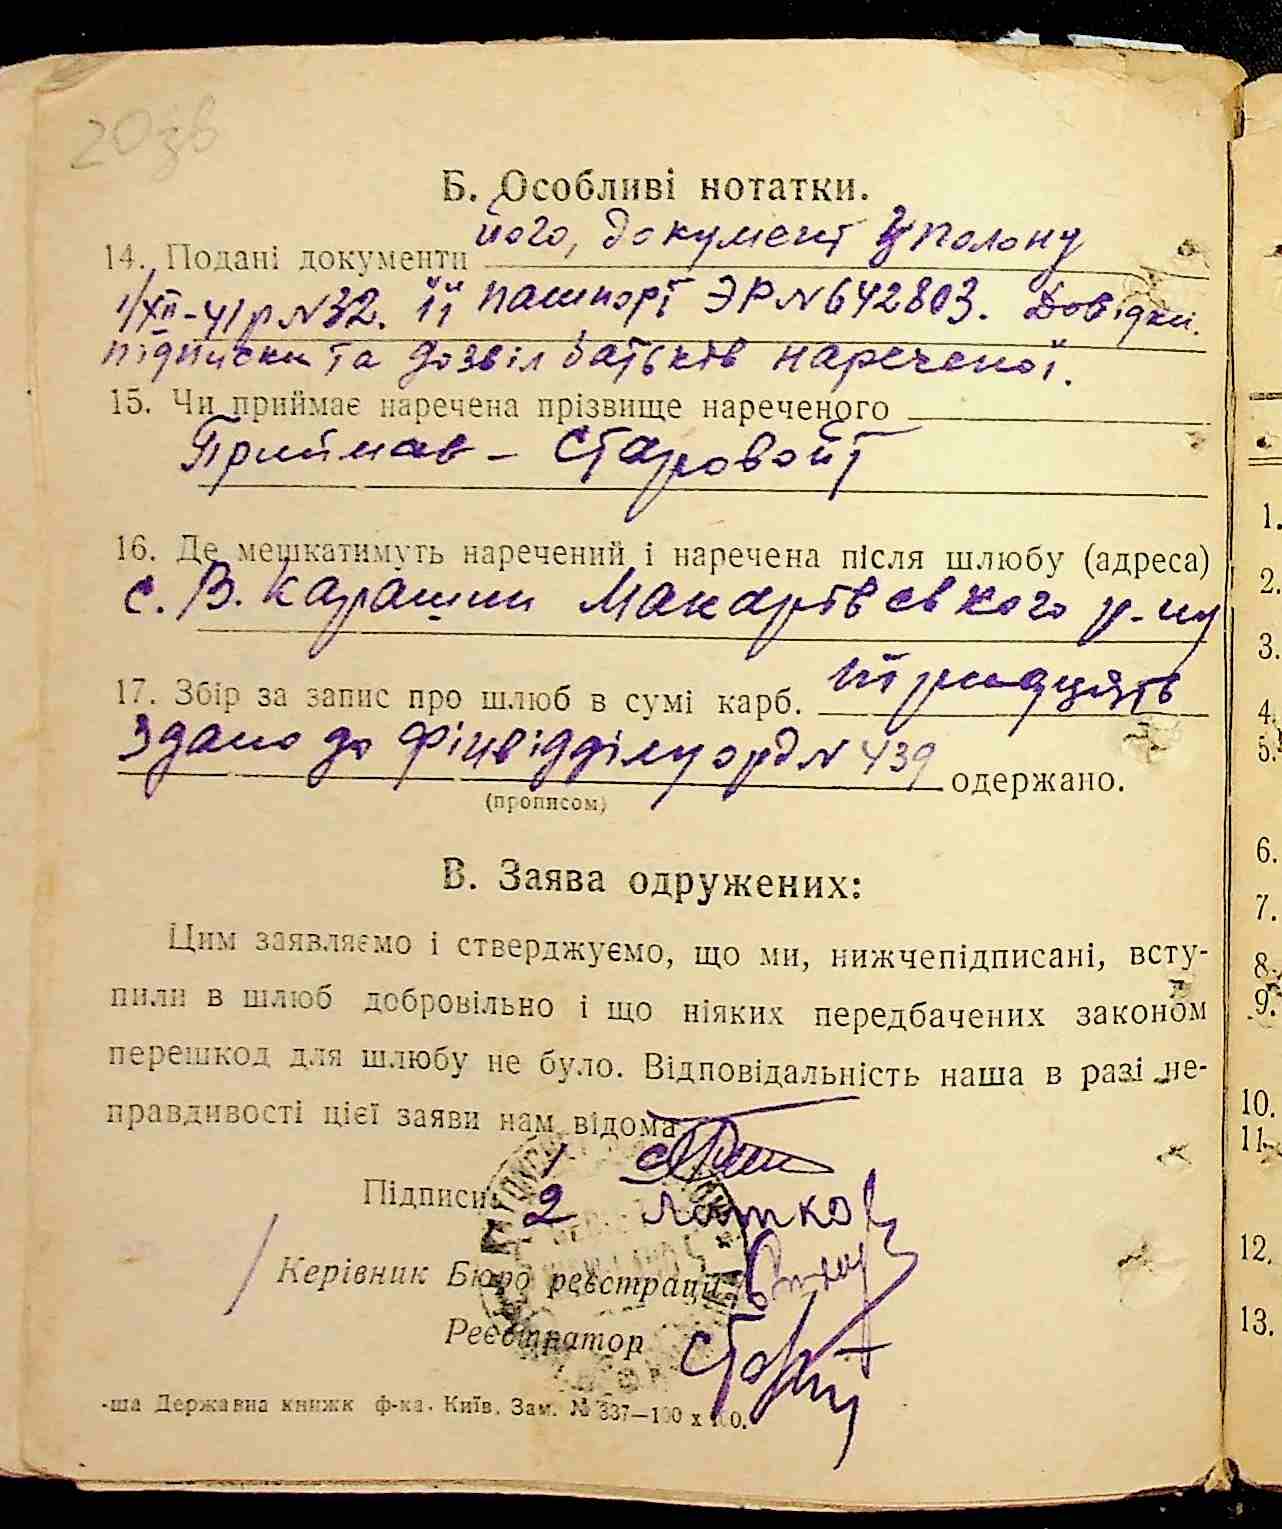 20зв
Б. Особливі нотатки.
його, документ з полону
14. Подані документи
1/XII-41р N32. її пашпорт ЭР N642803. Довідки.
підписки та дозвіл батьків нареченої.
15. Чи приймає наречена прізвище нареченого
Приймає - Старовойт
16. Де мешкатимуть наречений і наречена після шлюбу (адреса)
с. В. Карашин Макарівського р-ну
17. Збір за запис про шлюб в сумі карб. тридцять
Здано до фінвідділу орд N 439 одержано.
(прописом)
В. Заява одружених:
Цим заявляємо і стверджуємо, що ми, нижчепідписані, всту-
пили в шлюб добровільно і що ніяких передбачених законом
перешкод для шлюбу не було. Відповідальність наша в разі не-
правдивості цієї заяви нам відома
1
Підписи: 2
Керівник Бюро реєстрації
Реєстратор
-ша Державна книжк ф-ка. Київ. Зам. № 337—100 х 100.
1.
2.
3.
4.
5.
6.
7.
8.
9.
10.
11.
12.
13.